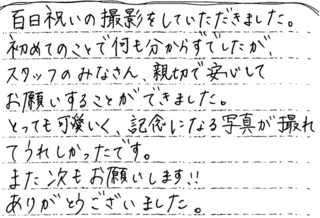 百日祝いの撮影をしていただきました。
初めてのことで何も分からずでしたが、
スタッフのみなさん、親切で安心して
お願いすることができました。
とっても可愛いく、記念になる写真が撮れ
てうれしかったです。
また次もお願いします!!
ありがとうございました。